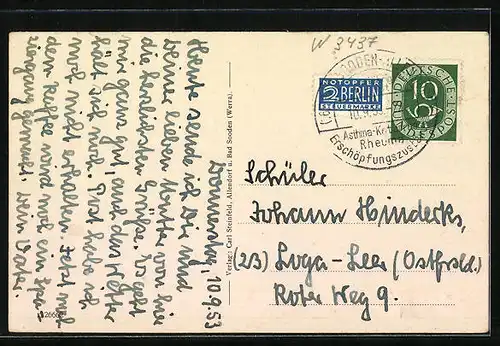 Donnerstag, 10.9.53
Heute sende ich dir und
deiner lieben Mutter von hier
die herzlichsten Grüße. Es geht
mir ganz gut, auch das Wetter
hält sich noch. Post habe ich
noch nicht erhalten. Jetzt nach
dem Kaffee wird noch ein Spa-
ziergang gemacht. Dein Vater.
Verlag: Carl Steinfeld, Allendorf u. Bad Sooden (Werra).
W 3437
NOTOPFER
2 BERLIN
STEUERMARKE
DEUTSCHE
BUNDESPOST
10
SOODEN-
10.9.53
Asthma-
Rheuma
Erschöpfungszust
Schüler
Johann Hinderks,
(23) Loga-Leer (Ostfrsld.)
Roter Weg 9.